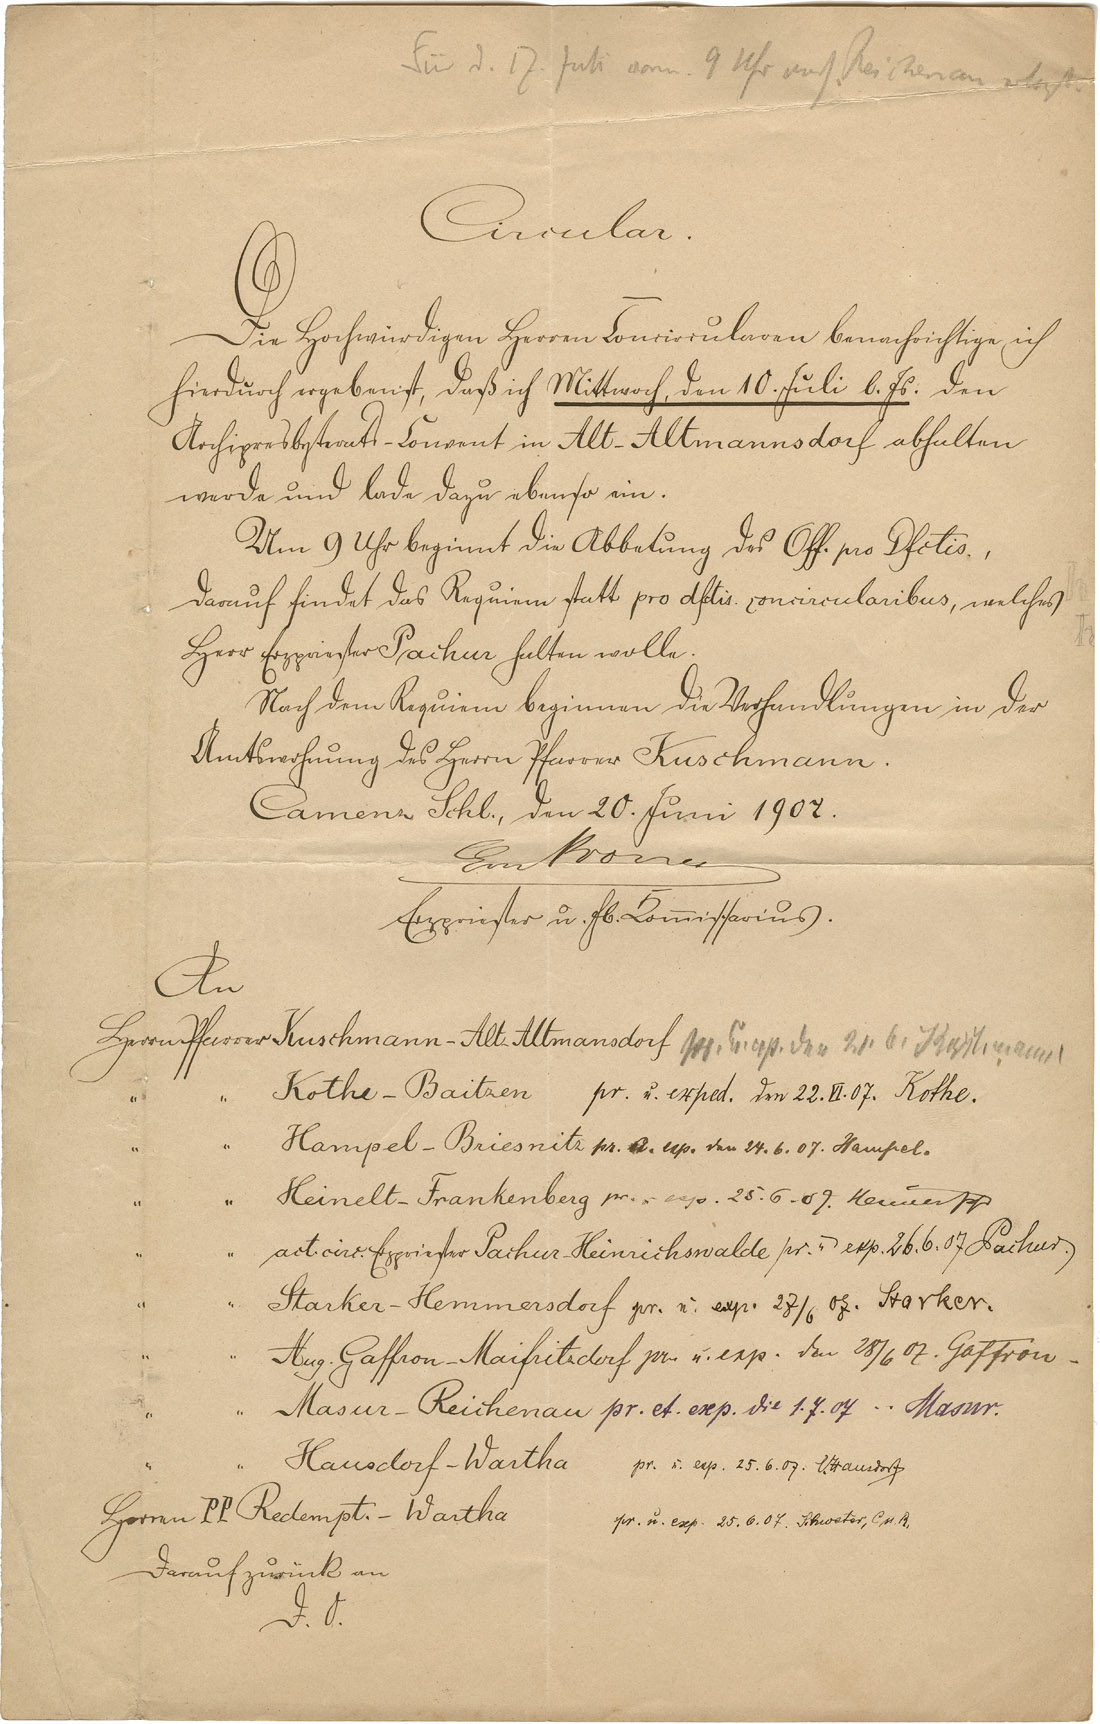 Für d. 17. Juli vorm. 9 Uhr nach Reichenau
Circular.
Die Hochwürdigen Herren Concircularen benachrichtige ich
hierdurch ergebenst, daß ich Mittwoch, den 10. Juli l. Js. den
Archipresbyterats-Convent in Alt-Altmannsdorf abhalten
werde und lade dazu ebenso ein.
Um 9 Uhr beginnt die Abbetung des Off. pro Dfctis.,
darauf findet das Requiem statt pro dfctis. concircularibus, welches
Herr Erzpriester Pachur halten wolle.
Nach dem Requiem beginnen die Verhandlungen in der
Amtswohnung des Herrn Pfarrer Kuschmann.
Camenz Schl., den 20. Juni 1907.
Erzpriester u. fb. Com̅issarius.
An
Herrn Pfarrer Kuschmann-Alt Altmansdorf pr. u. exp. den 21. 6. Kuschmann
" " Kothe-Baitzen pr. u. exped. den 22. VI. 07. Kothe.
" " Hampel-Briesnitz pr. u. exp. den 24. 6. 07. Hampel.
" " Heinelt-Frankenberg pr. u. exp. 25. 6. 07.
" " act. circ. Erzpriester Pachur-Heinrichswalde pr. u. exp. 26. 6. 07 Pachur.
" " Starker-Hemmersdorf pr. u. exp. 27/6 07. Starker.
" " Aug. Gaffron-Maifritzdorf pr. u. exp. den 28/6 07. Gaffron
" " Masur-Reichenau pr. et. exp. die 1. 7. 07 Masur.
" " Hausdorf-Wartha pr. u. exp. 25. 6. 07. Hausdorf
Herren PP Redempt.-Wartha pr. u. exp. 25. 6. 07. Schweter, C. ss. R.
Darauf zurück an
D. O.